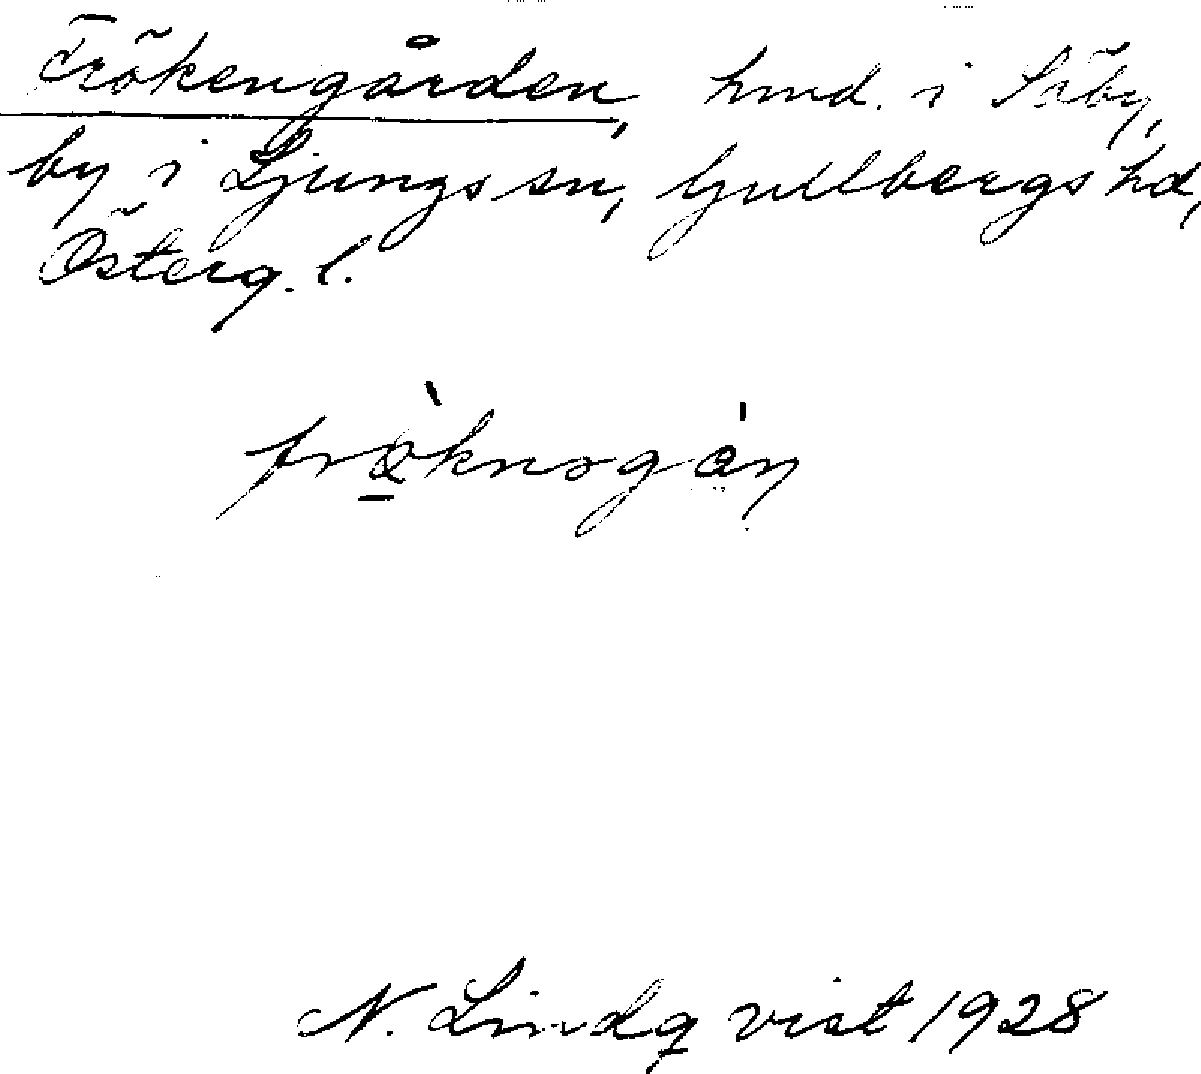 Frökengården, hmd. i Säby,
by i Ljungs sn, Gullbergs hd,
Österg. l.
N. Lindqvist 1928